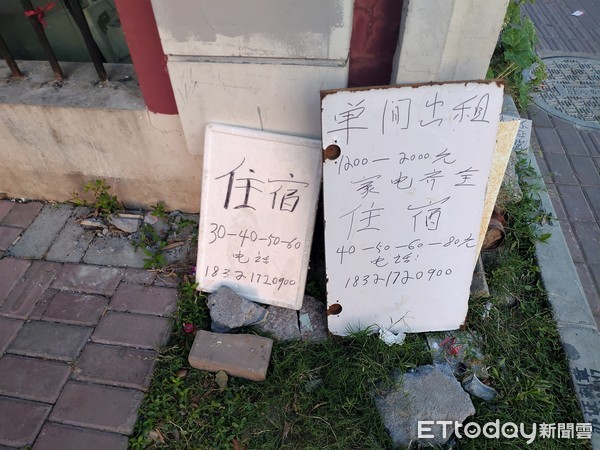 住宿
30-40-50-60
电话
18321720900
单间出租
1200-2000元
家电齐全
住宿
40-50-60-80元
电话:
18321720900
ETtoday新聞雲